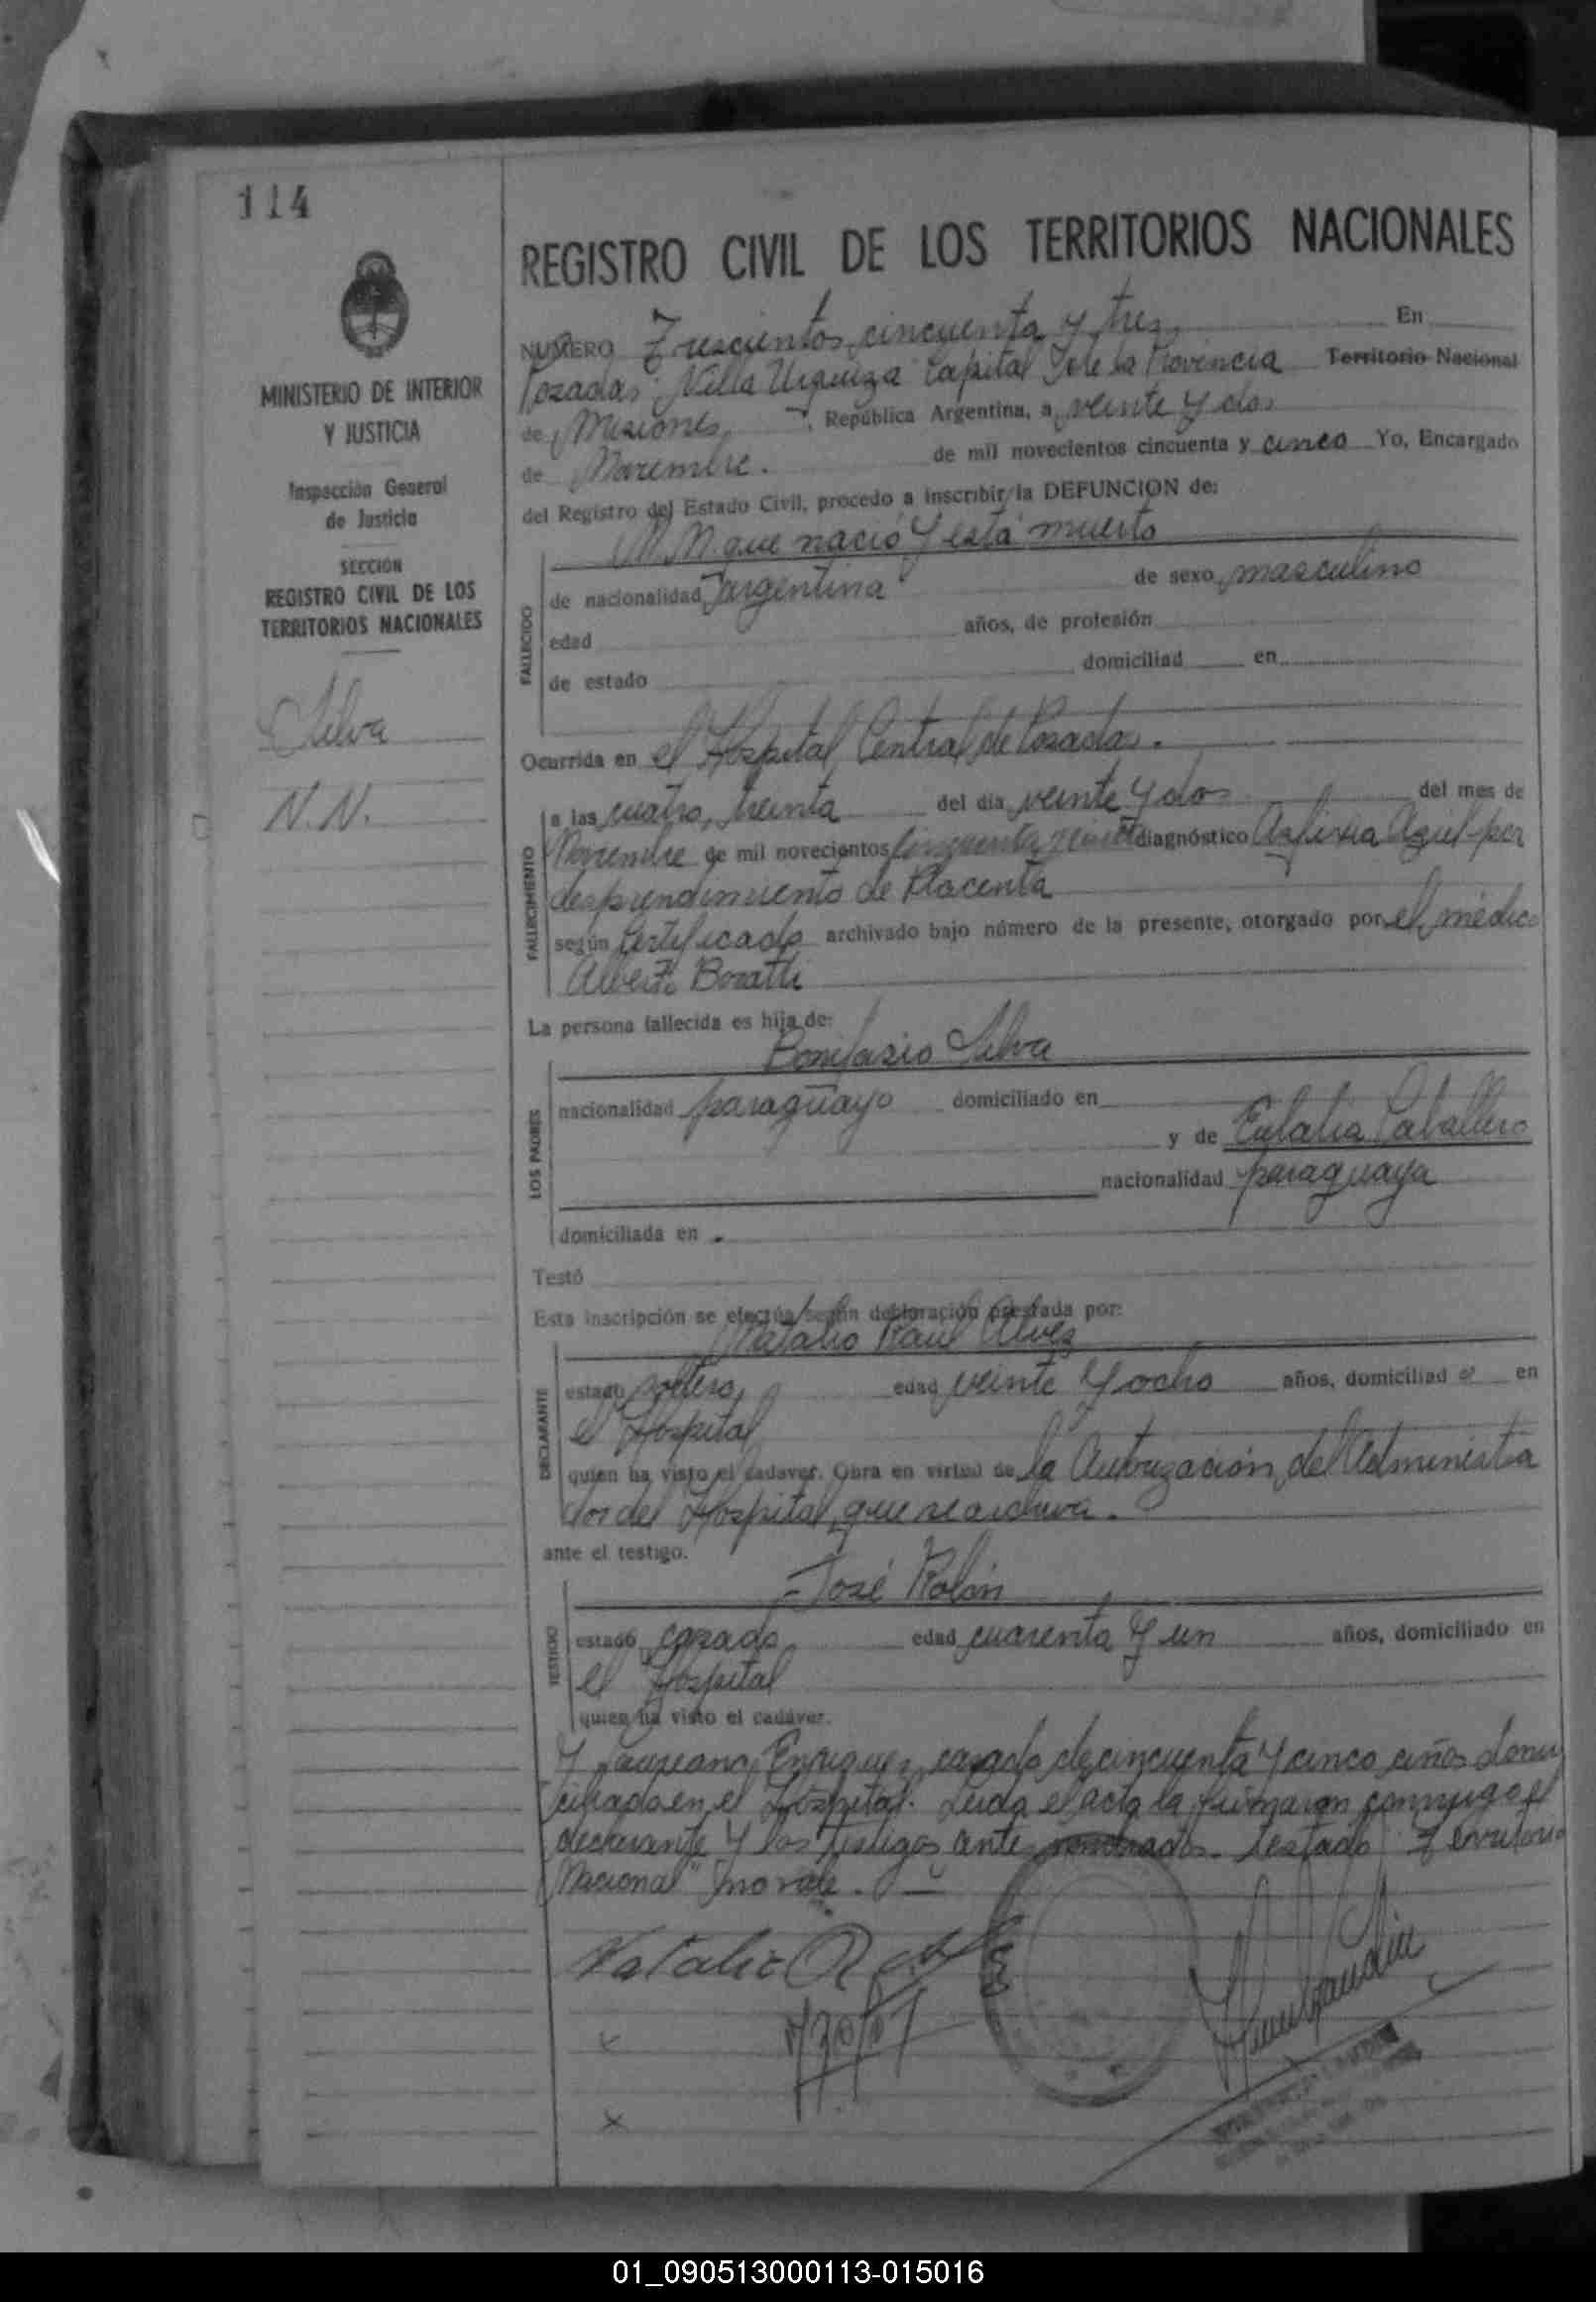 114
MINISTERIO DE INTERIOR
Y JUSTICIA
Inspección General
de Justicia
SECCION
REGISTRO CIVIL DE LOS
TERRITORIOS NACIONALES
Silva
N.N.
REGISTRO CIVIL DE LOS TERRITORIOS NACIONALES
NUMERO Trescientos cincuenta y tres En
Posadas Villa Urquiza Capital de la Provincia Territorio Nacional
de Misiones, República Argentina, a veinte y dos
de Noviembre. de mil novecientos cincuenta y cinco Yo, Encargado
del Registro del Estado Civil, procedo a inscribir la DEFUNCION de:
N.N. que nació y está muerto
FALLECIDO
de nacionalidad argentina de sexo masculino
edad años, de profesión
de estado domiciliad en
Ocurrida en el Hospital Central de Posadas.
FALLECIMIENTO
a las cuatro, treinta del día veinte y dos del mes de
Noviembre de mil novecientos cincuenta diagnóstico Asfixia por
desprendimiento de Placenta
según Certificado archivado bajo número de la presente, otorgado por el médico
Alberto
La persona fallecida es hija de:
Bonifasio Silva
LOS PADRES
nacionalidad paraguayo domiciliado en
y de Eulalia Caballero
nacionalidad paraguaya
domiciliada en .
Testó
Esta inscripción se efectúa según declaración prestada por:
Natalio Raul Alvez
DECLARANTE
estado soltero, edad veinte y ocho años, domiciliad o en
el Hospital
quien ha visto el cadaver. Obra en virtud de la Autorización del Administra
dor del Hospital, que se archiva.
ante el testigo.
José Rolón
TESTIGO
estado casado edad cuarenta y un años, domiciliado en
el Hospital
quien ha visto el cadáver.
Y Laureano Enriquez, casado de cincuenta y cinco años domi
ciliado en el Hospital. Leida el acta la firmaron conmigo el
declarante y los testigos ante nombrados. Testado Territorio
Nacional" no vale.
Natalio R
01_090513000113-015016